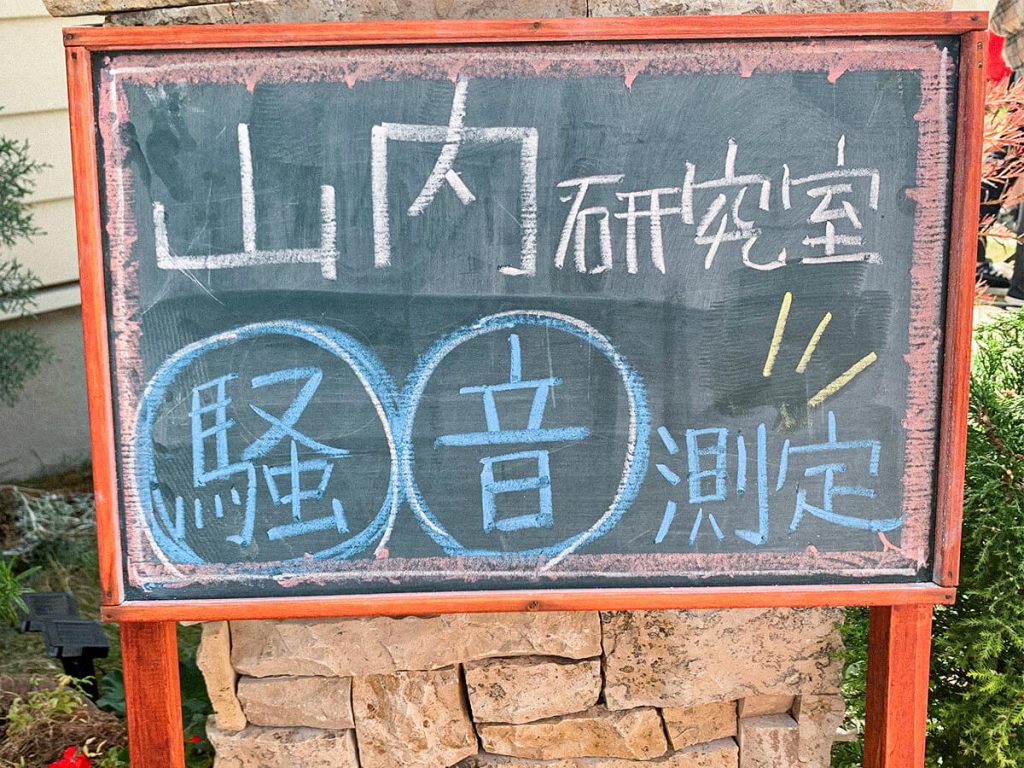 山内研究室
騒音測定